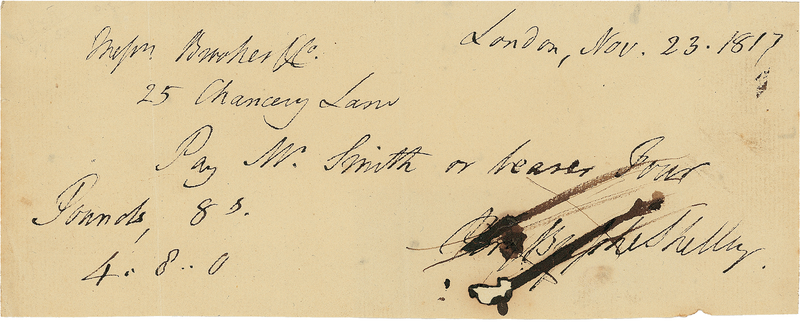 London, Nov. 23. 1817
Messrs. Brookes & Co.
25 Chancery Lane
Pay Mr. Smith or bearer Four
Pounds, 8 s.
4 . 8 .. 0
Bysshe Shelley.